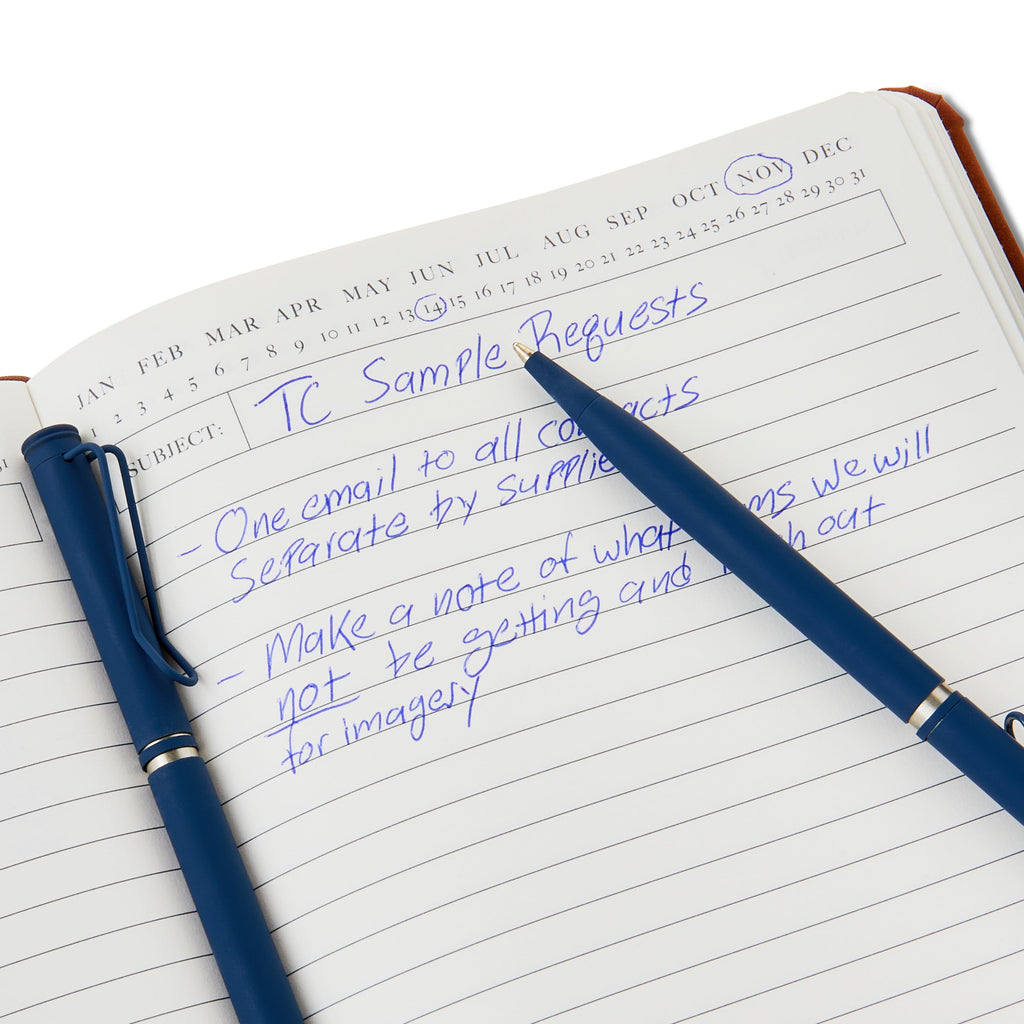 JAN FEB MAR APR MAY JUN JUL AUG SEP OCT NOV DEC
1 2 3 4 5 6 7 8 9 10 11 12 13 14 15 16 17 18 19 20 21 22 23 24 25 26 27 28 29 30 31
SUBJECT: TC Sample Requests
- One email to all
Separate by
- Make a note of what we will
not be getting and out
for imagery
31